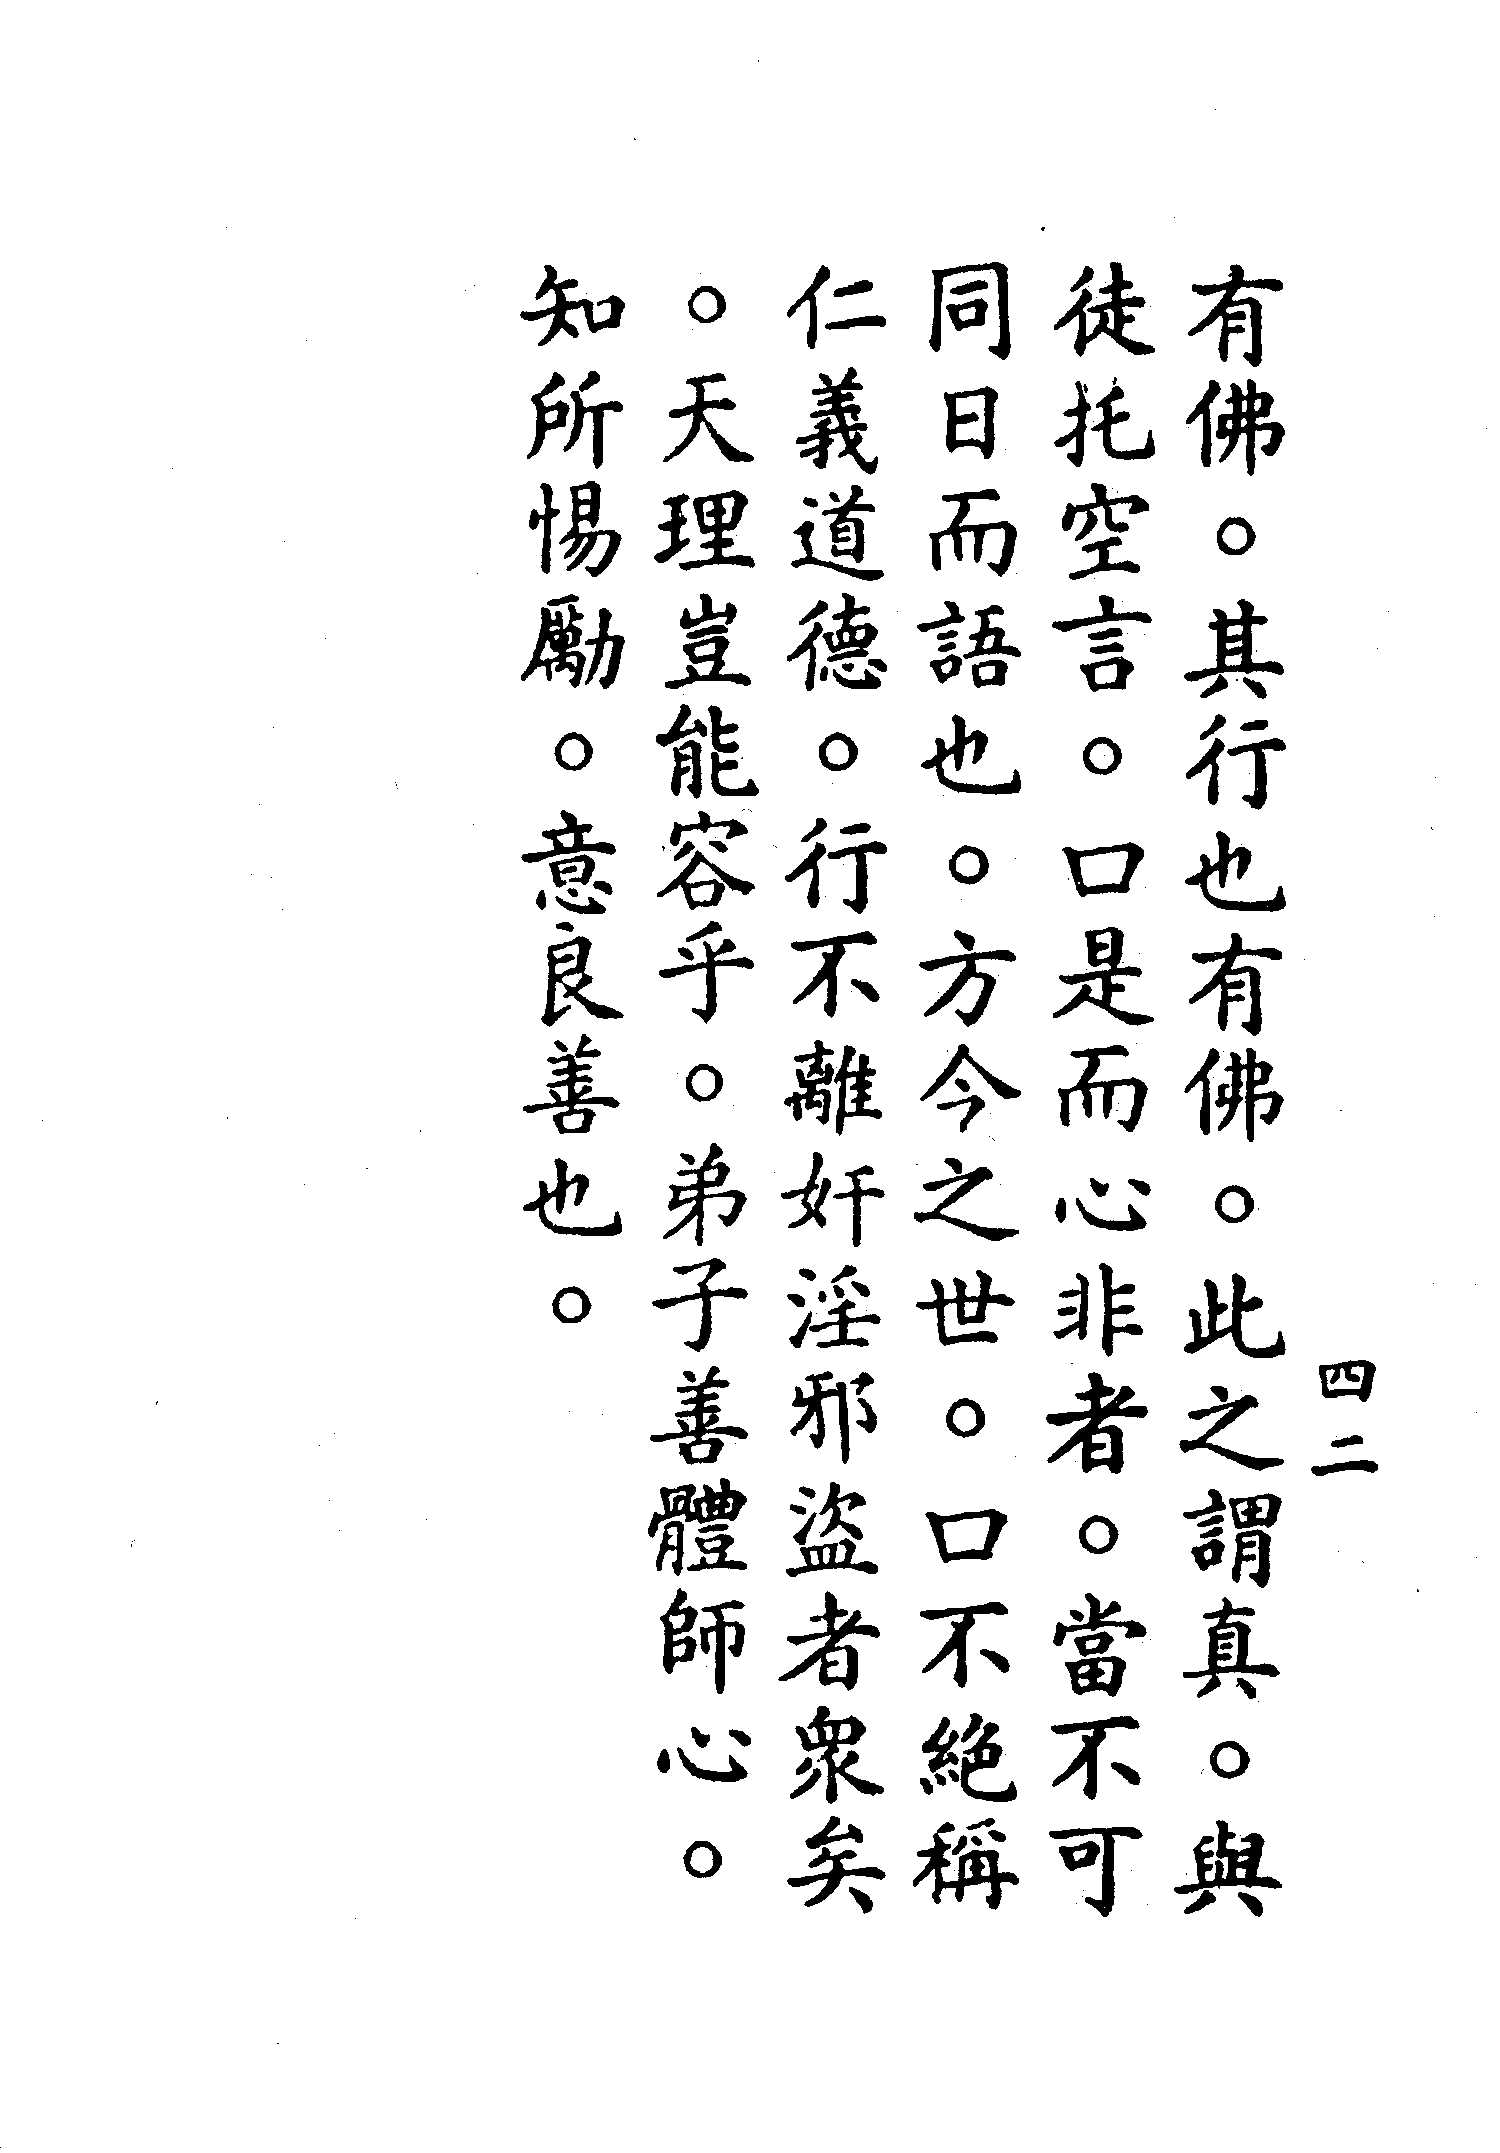 四二
有佛。其行也有佛。此之謂真。與
徒托空言。口是而心非者。當不可
同日而語也。方今之世。口不絕稱
仁義道德。行不離奸淫邪盜者眾矣
。天理豈能容乎。弟子善體師心。
知所惕勵。意良善也。